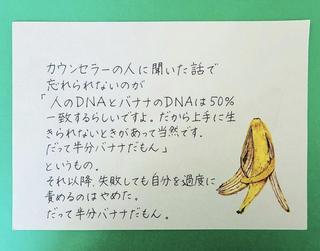 カウンセラーの人に聞いた話で
忘れられないのが
「人のDNAとバナナのDNAは50%
一致するらしいですよ。だから上手に生
きられないときがあって当然です.
だって半分バナナだもん」
というもの.
それ以降、失敗しても自分を過度に
責めるのはやめた。
だって半分バナナだもん.